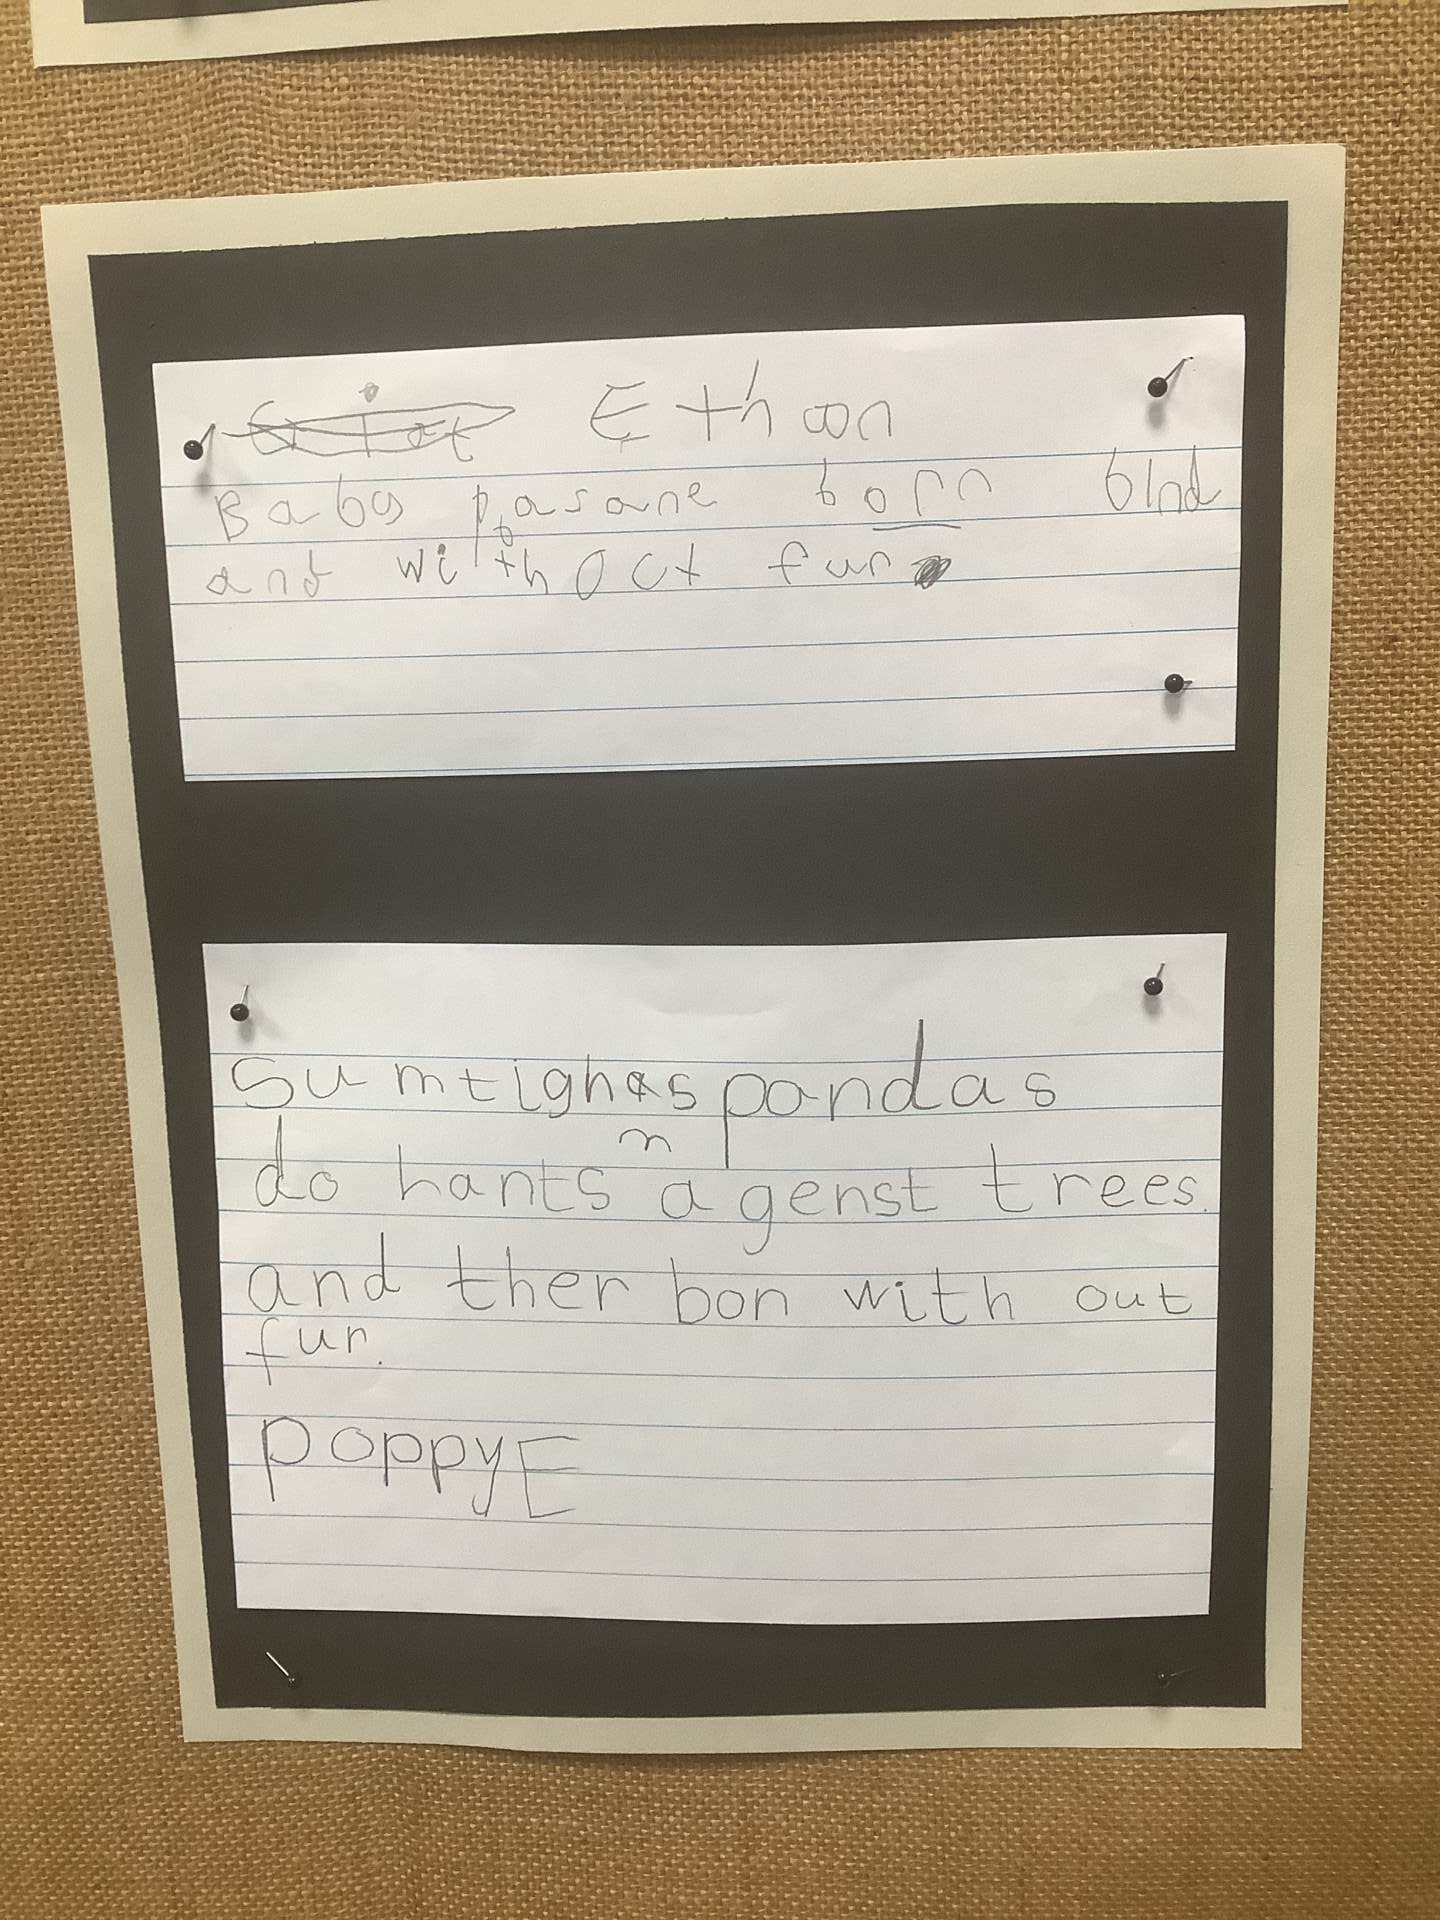 Ethan
Baby pasane born blnd
and without fur
Sumtighas pandas
do hants agenst trees.
and ther bon with out
fur.
poppy E